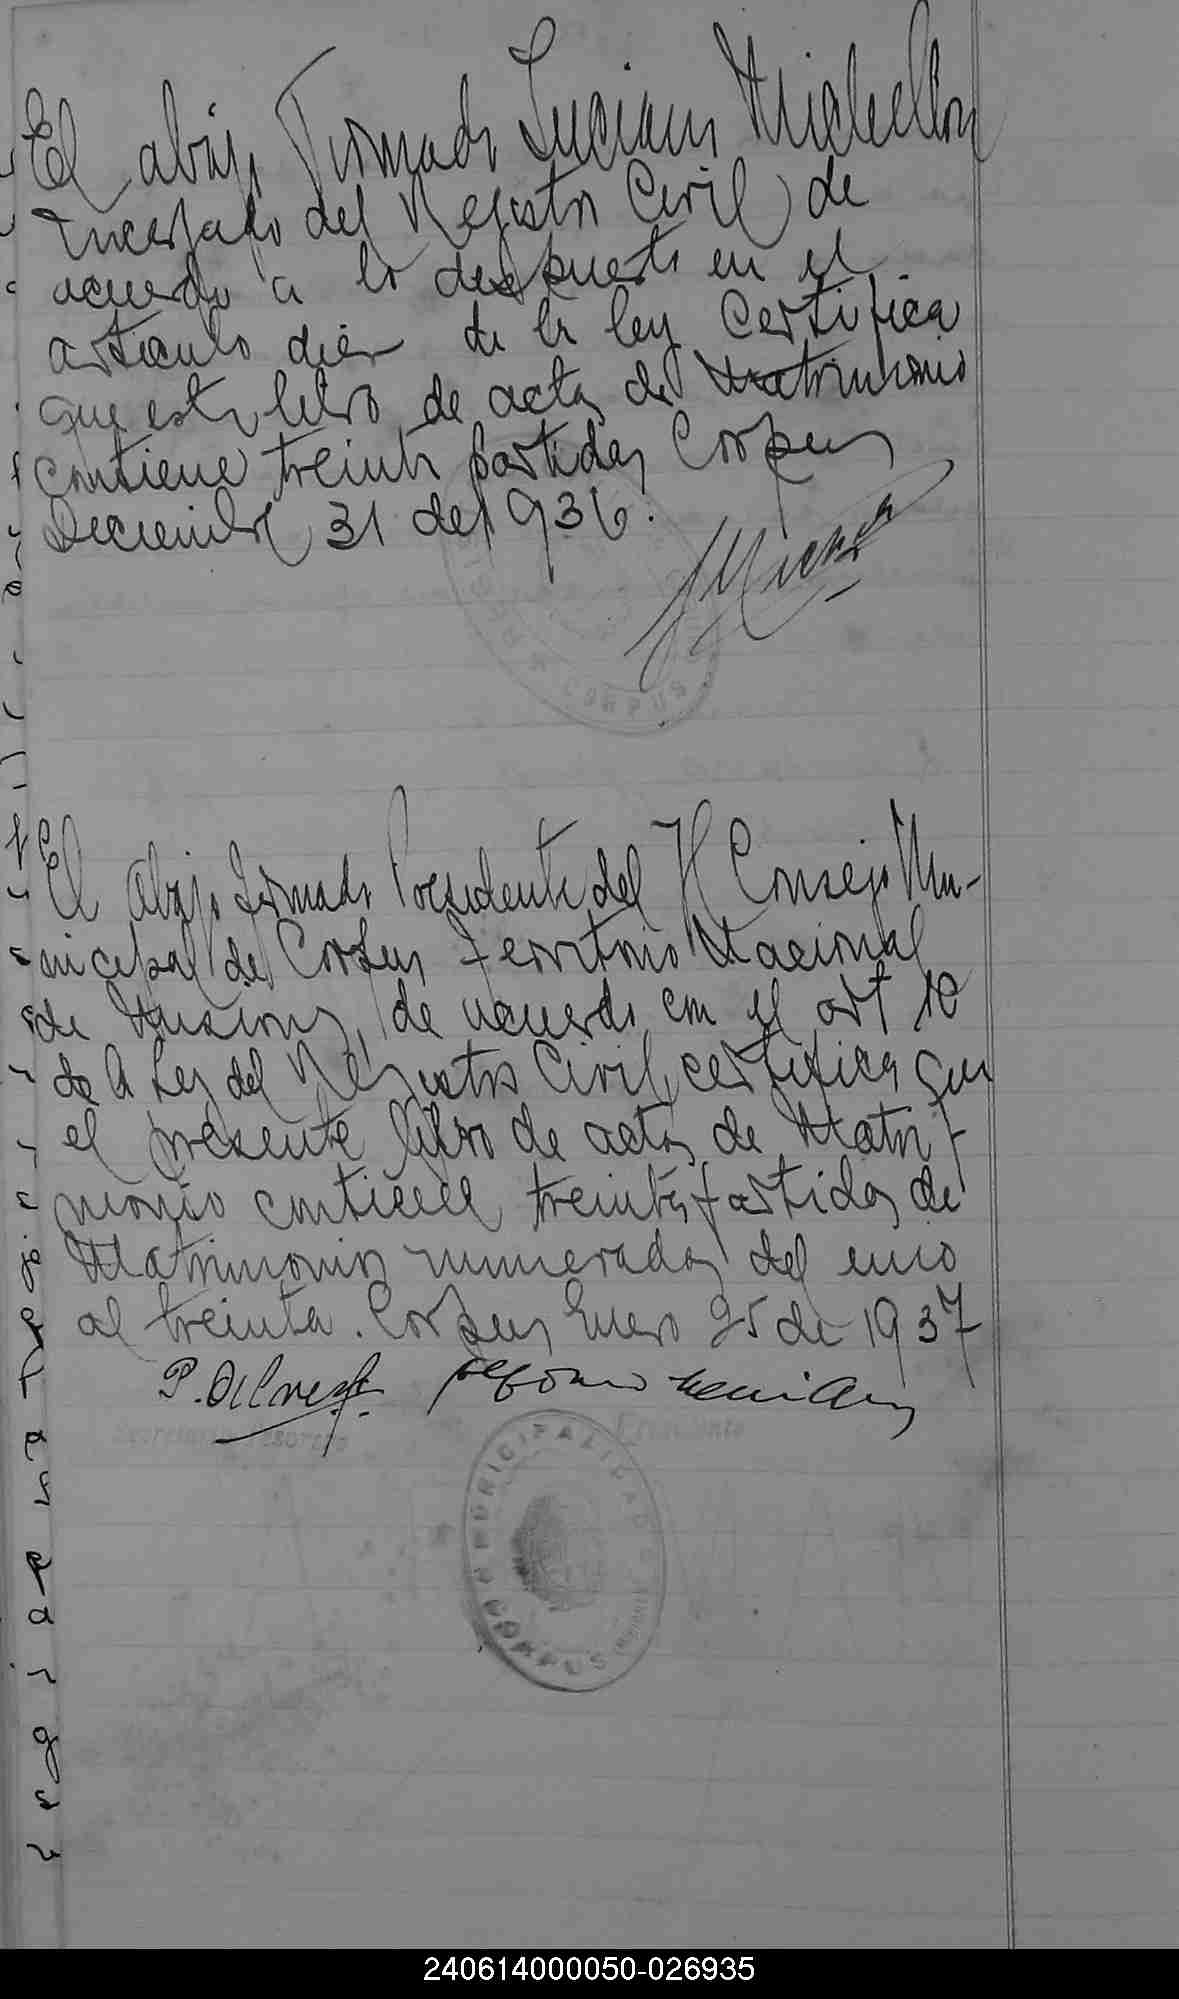 El abajo Firmado Luciano
Encargado del Registro Civil de
acuerdo a lo despuesto en el
articulo diez de la ley Certifica
que este libro de actas de Matrimonio
contiene treinta partidas Corpus
Deciembre 31 del 936.
REGISTRO
CORPUS
El abajo firmado Presidente del H Consejo Mu-
nicipal de Corpus Territorio Nacional
de Misiones, de acuerdo con el art 10
de la Ley del Registro Civil, certifica que
el presente libro de actas de Matri-
monio contiene treinta partidas de
Matrimonios numeradas del uno
al treinta. Corpus Enero 25 de 1937
Secretario Tesorero
Presidente
MUNICIPALIDAD DE
CORPUS (MISIONES)
240614000050-026935